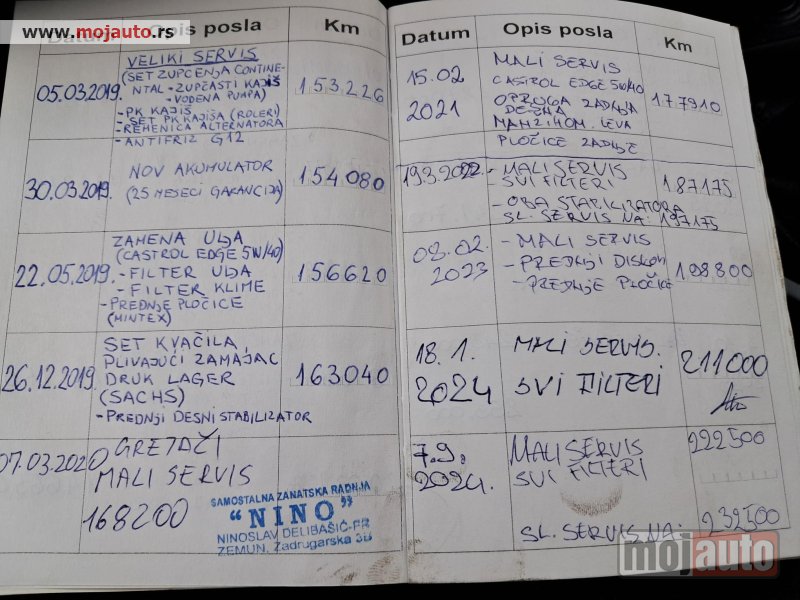 www.mojauto.rs
Datum Opis posla Km
05.03.2019.
VELIKI SERVIS
(SET ZUPČENJA CONTINE-
NTAL - ZUPČASTI KAJIŠ
- VODENA PUMPA)
- PK KAJIŠ
- SET PK KAJIŠA (ROLERI)
- REMENICA ALTERNATORA
- ANTIFRIZ G12
153.226
30.03.2019.
NOV AKUMULATOR
(25 MESECI GARANCIJA)
154080
22.05.2019.
ZAMENA ULJA
(CASTROL EDGE 5W/40)
- FILTER ULJA
- FILTER KLIME
- PREDNJE PLOČICE
(MINTEX)
156620
26.12.2019.
SET KVAČILA,
PLIVAJUĆI ZAMAJAC
DRUK LAGER
(SACHS)
- PREDNJI DESNI STABILIZATOR
163040
07.03.2020
GREJAČI
MALI SERVIS
168200
SAMOSTALNA ZANATSKA RADNJA
"NINO"
NINOSLAV DELIBAŠIĆ-PR
ZEMUN, Zadrugarska 3B
Datum Opis posla Km
15.02
2021
MALI SERVIS
CASTROL EDGE 5W/40
OPRUGA ZADNJA
DESNA
MANŽIHOM. LEVA
PLOČICE ZADNJE
177910
19.3.2022
- MALI SERVIS
SVI FILTERI
- OBA STABILIZATORA
SL. SERVIS NA: 197175
187175
08.02.
2023
- MALI SERVIS
- PREDNJI DISKOVI
- PREDNJE PLOČICE
198800
18.1.
2024
MALI SERVIS.
SVI FILTERI
211000
7.9.
2024.
MALI SERVIS
SVI FILTERI
222500
SL. SERVIS NA: 232500
mojauto